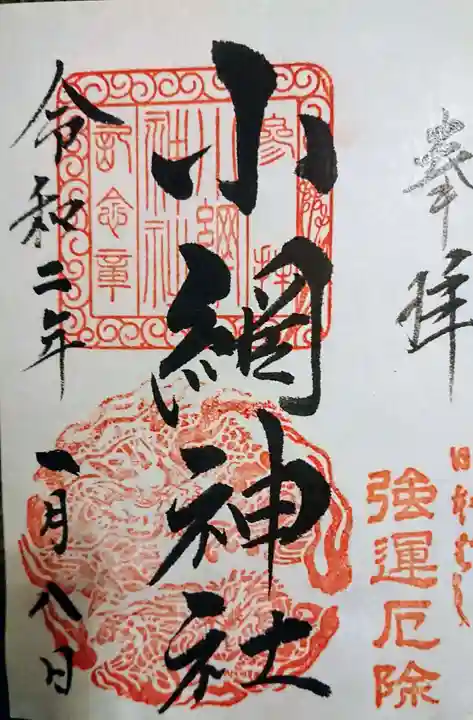 奉拝
日本はし
強運厄除
小網神社
参拝
小網神社
記念章
令和二年
一月八日